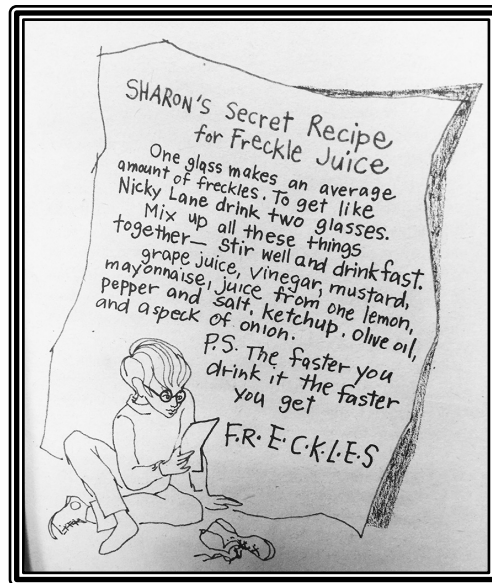 SHARON'S Secret Recipe
for Freckle Juice
One glass makes an average
amount of freckles. To get like
Nicky Lane drink two glasses.
Mix up all these things
together— stir well and drink fast.
grape juice, vinegar, mustard,
mayonnaise, juice from one lemon,
pepper and salt, ketchup, olive oil,
and a speck of onion.
P.S. The faster you
drink it the faster
you get
F.R.E.C.K.L.E.S